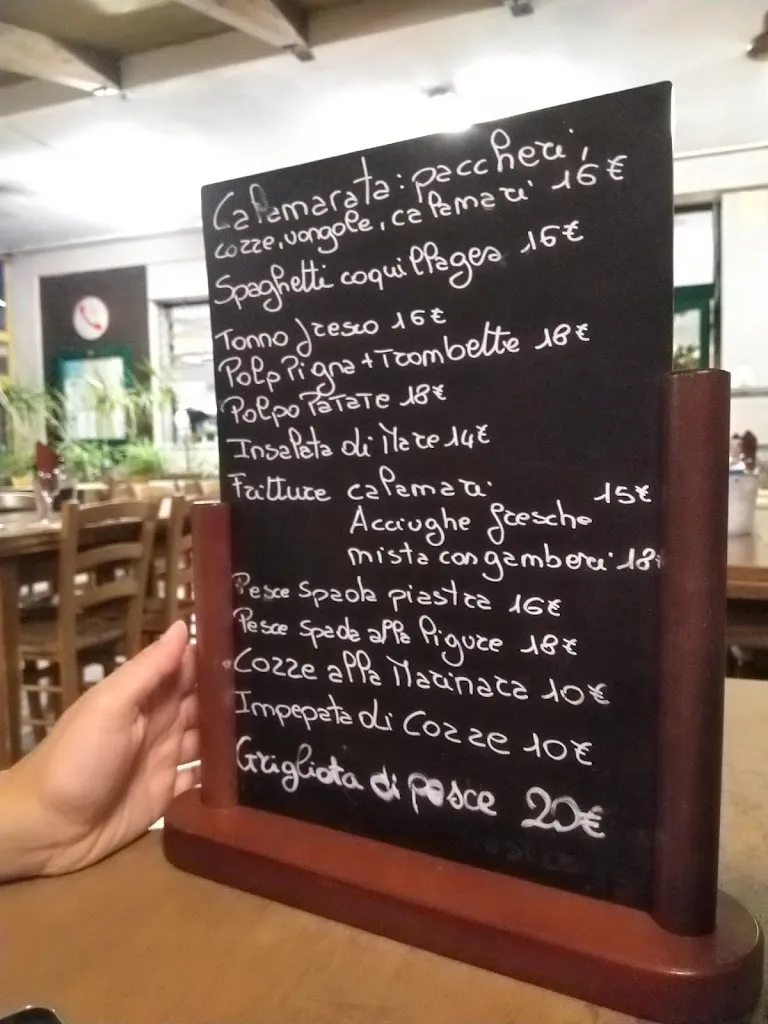 Calamarata: paccheri,
cozze, vongole, calamari 16€
Spaghetti coquillages 16€
Tonno fresco 16€
Polp Pigna + Trombette 18€
Polpo PATATE 18€
Insalata di Mare 14€
Fritture calamari 15€
Acciughe fresche
mista con gamberi 18€
Pesce Spada piastra 16€
Pesce Spada alla ligure 18€
Cozze alla Marinara 10€
Impepata di Cozze 10€
Grigliata di pesce 20€